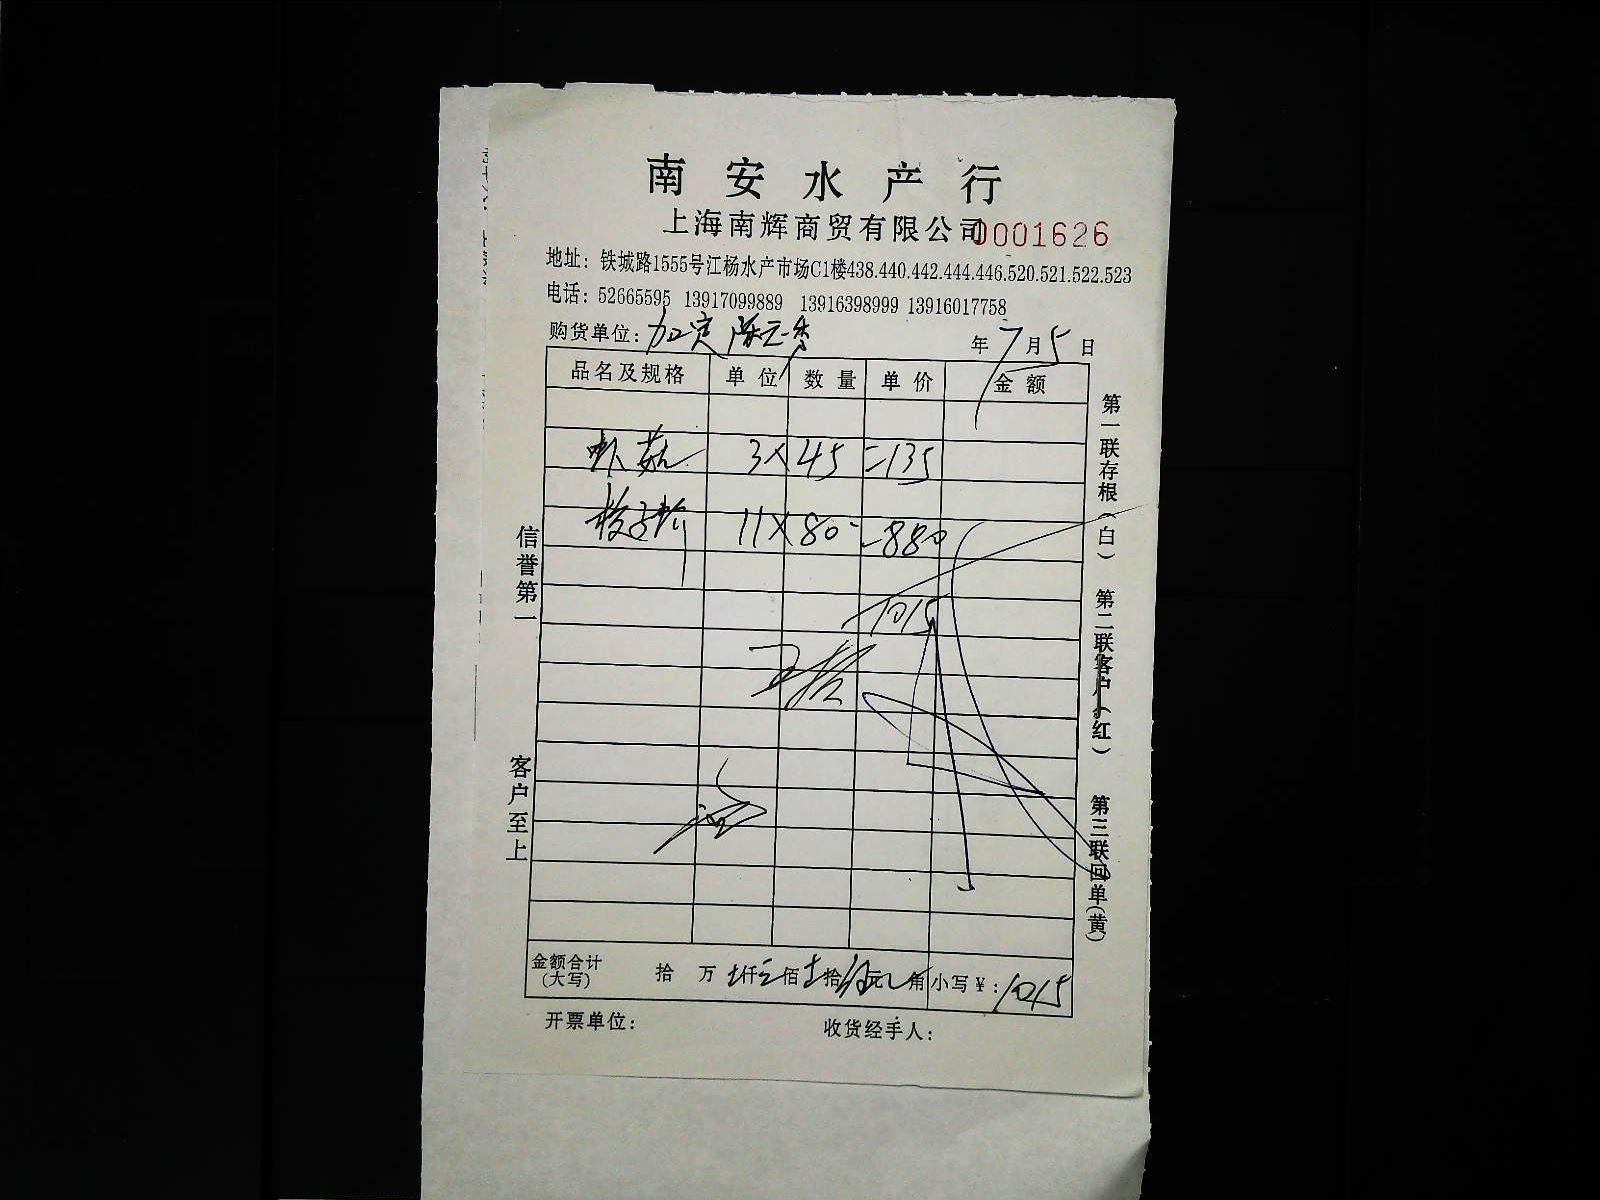 南安水产行
上海南辉商贸有限公司 0001626
地址：铁城路1555号江杨水产市场C1楼438.440.442.444.446.520.521.522.523
电话：52665595 13917099889 13916398999 13916017758
购货单位： 年7月5日
品名及规格 单位 数量 单价 金额
虾菇 3×45=135
11×80=880
1015
金额合计(大写) 拾 万 仟 佰 拾 元 角 小写￥：1015
开票单位： 收货经手人：
信誉第一
客户至上
第一联存根(白) 第二联客户(红) 第三联回单(黄)